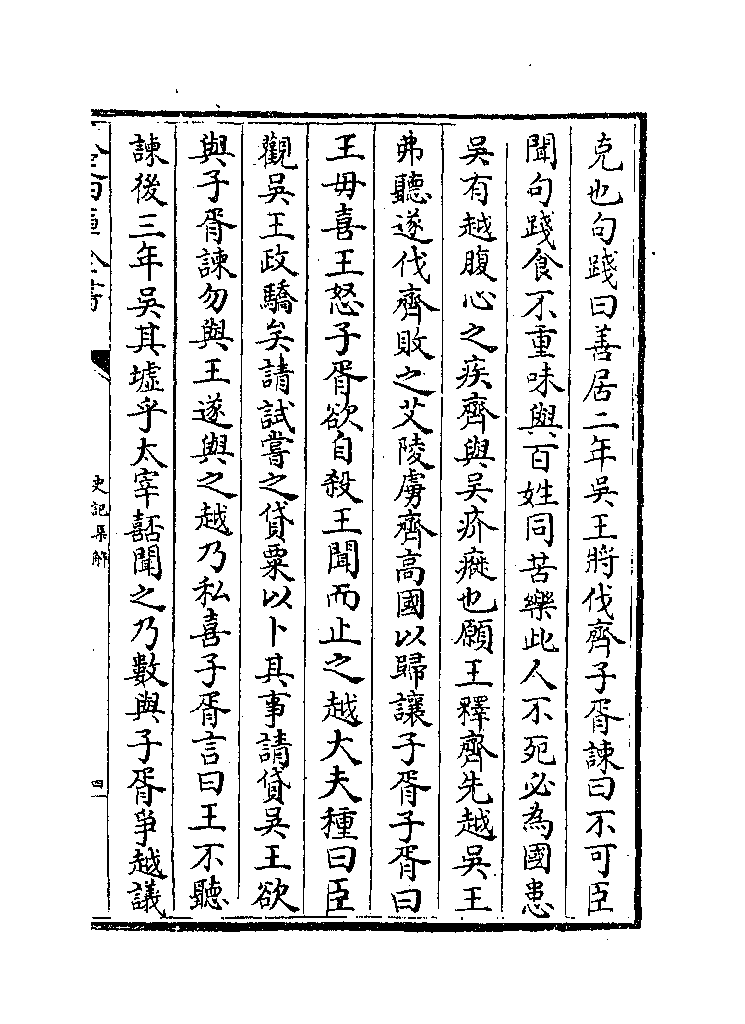 克也句踐曰善居二年吳王將伐齊子胥諫曰不可臣
聞句踐食不重味與百姓同苦樂此人不死必為國患
吳有越腹心之疾齊與吳疥㿇也願王釋齊先越吳王
弗聽遂伐齊敗之艾陵虜齊高國以歸讓子胥子胥曰
王毋喜王怒子胥欲自殺王聞而止之越大夫種曰臣
觀吳王政驕矣請試嘗之貸粟以卜其事請貸吳王欲
與子胥諫勿與王遂與之越乃私喜子胥言曰王不聽
諫後三年吳其墟乎太宰嚭聞之乃數與子胥爭越議
史記集解